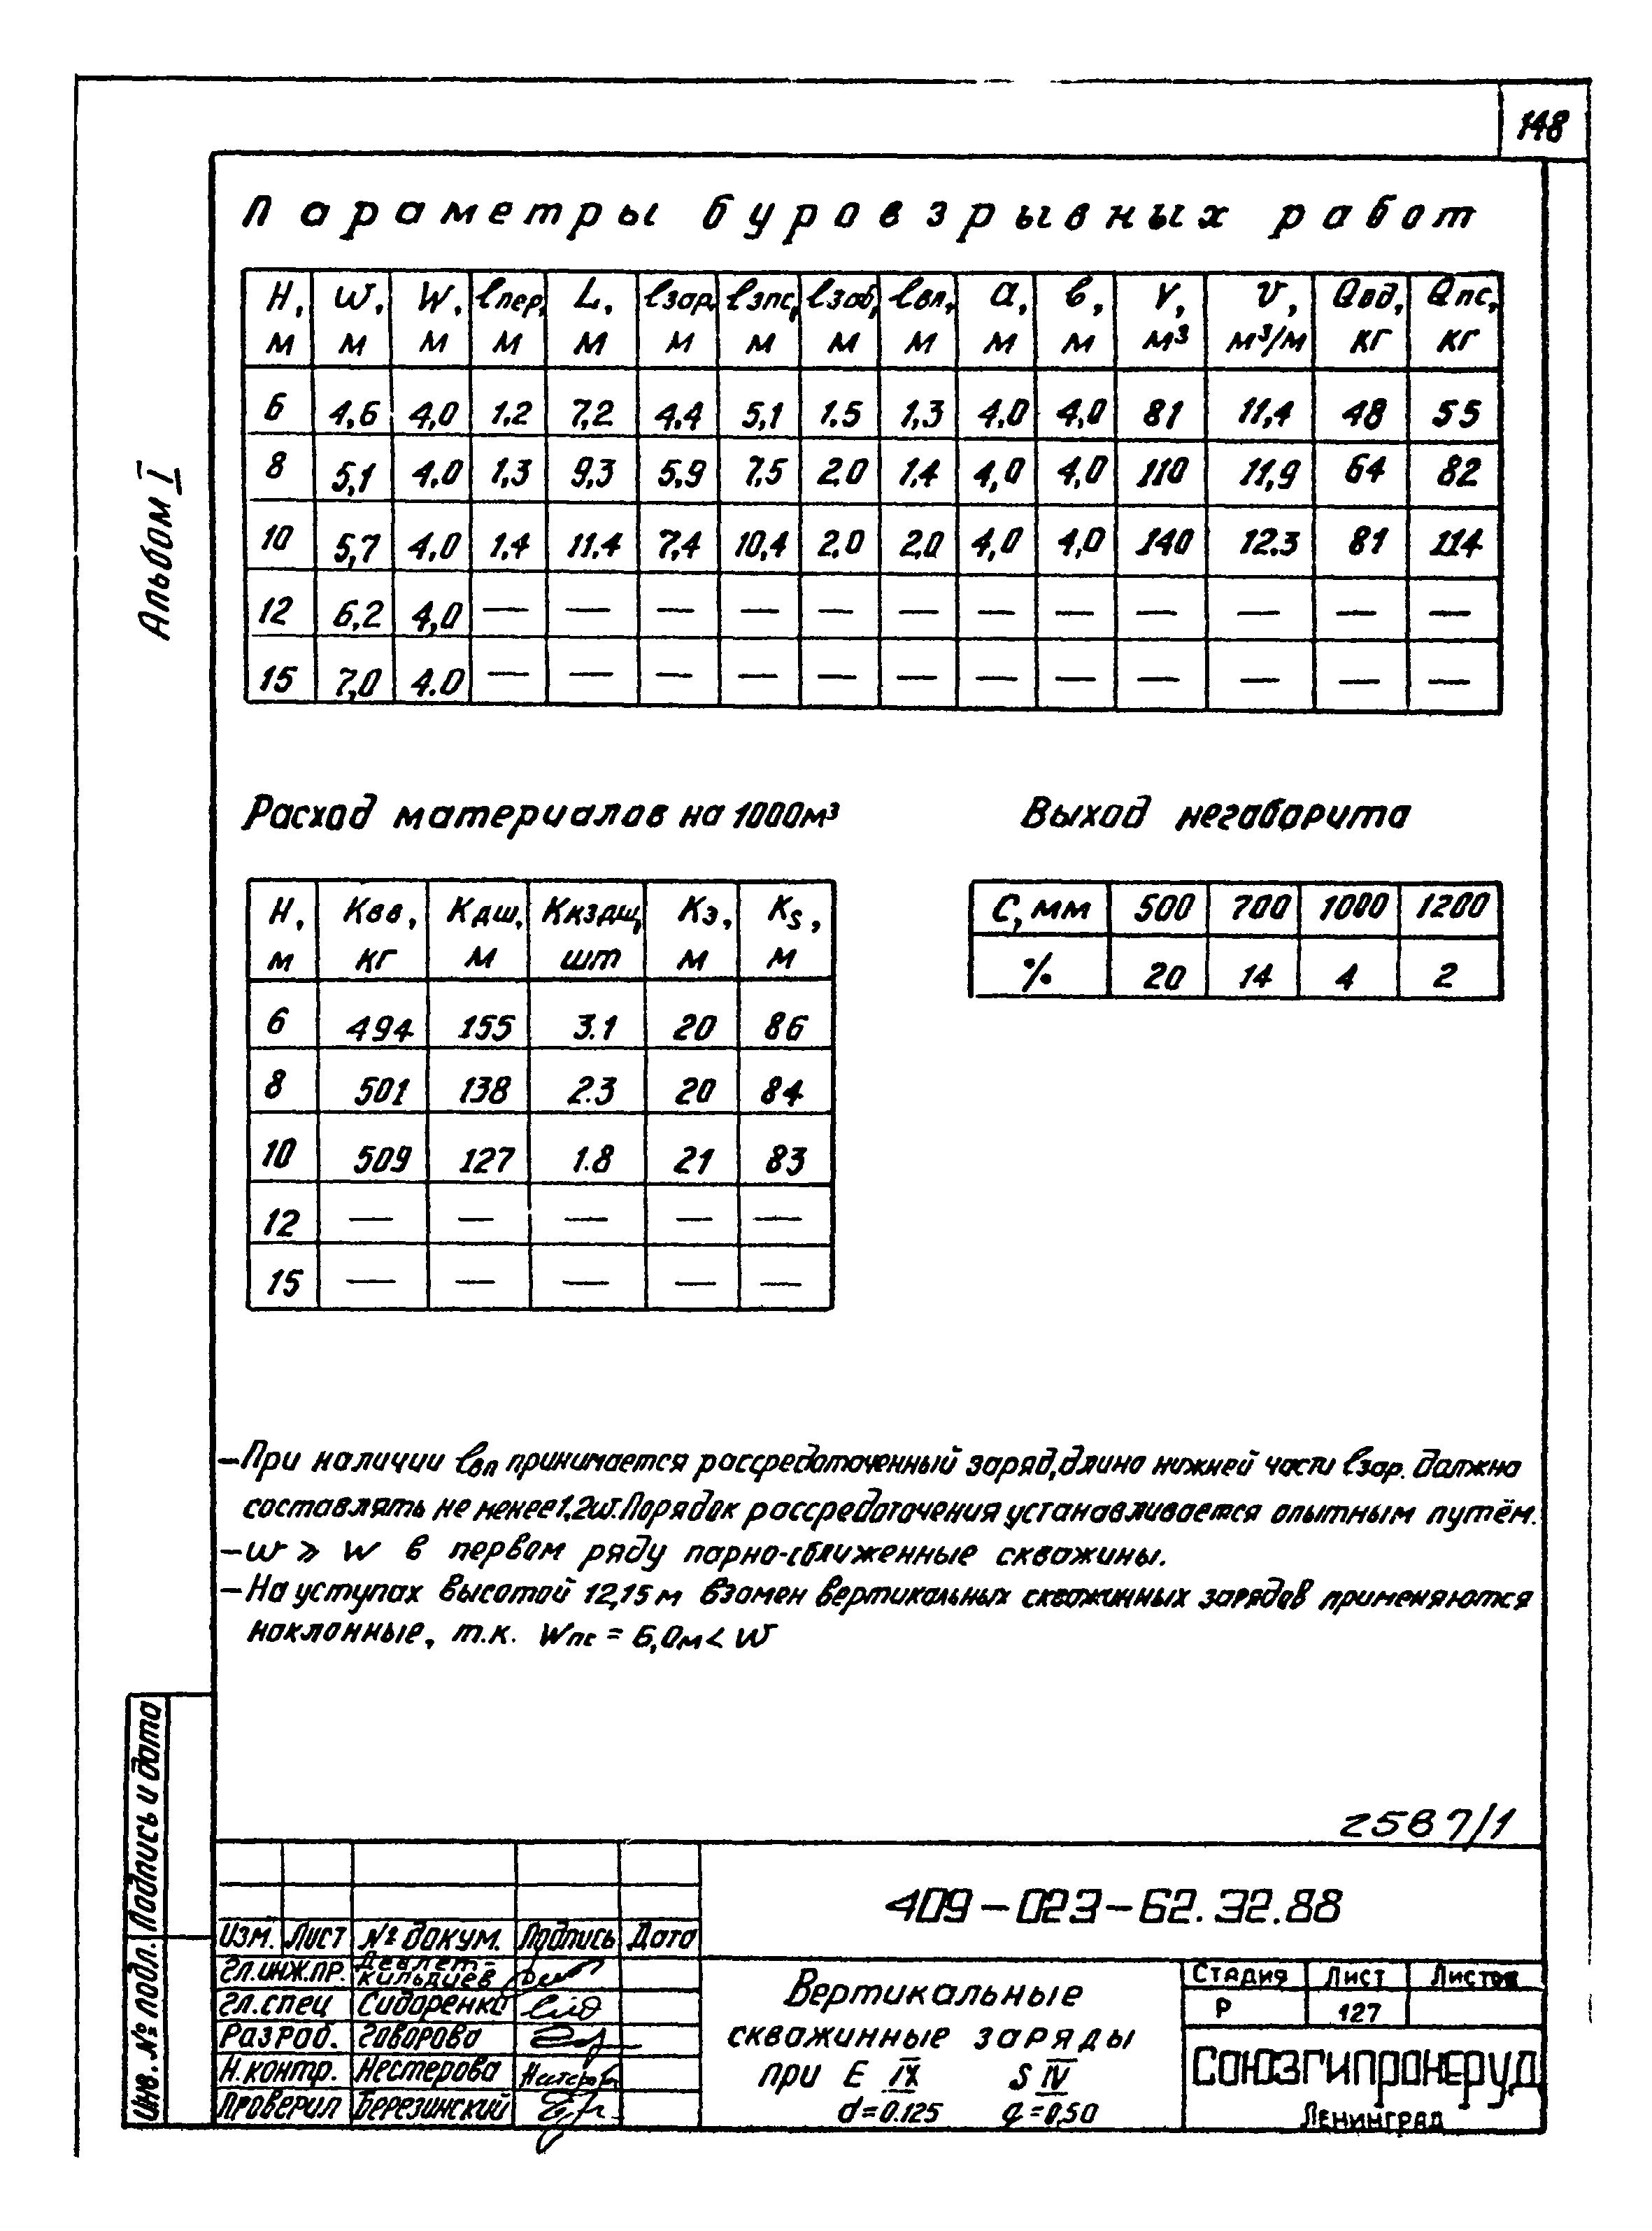 148
Альбом I
Параметры буровзрывных работ
H, м | ω, м | W, м | ℓпер, м | L, м | ℓзар, м | ℓзпс, м | ℓзаб, м | ℓвп, м | a, м | в, м | V, м³ | υ, м³/м | Qвд, кг | Qпс, кг
6 | 4,6 | 4,0 | 1,2 | 7,2 | 4,4 | 5,1 | 1.5 | 1,3 | 4,0 | 4,0 | 81 | 11,4 | 48 | 55
8 | 5,1 | 4,0 | 1,3 | 9,3 | 5,9 | 7,5 | 2,0 | 1,4 | 4,0 | 4,0 | 110 | 11,9 | 64 | 82
10 | 5,7 | 4,0 | 1,4 | 11.4 | 7,4 | 10,4 | 2.0 | 2,0 | 4,0 | 4,0 | 140 | 12.3 | 81 | 114
12 | 6,2 | 4,0 | — | — | — | — | — | — | — | — | — | — | — | —
15 | 7,0 | 4.0 | — | — | — | — | — | — | — | — | — | — | — | —
Расход материалов на 1000м³
H, м | Kвв, кг | Kдш, м | Kкздш, шт | Kэ, м | Ks, м
6 | 494 | 155 | 3.1 | 20 | 86
8 | 501 | 138 | 2.3 | 20 | 84
10 | 509 | 127 | 1.8 | 21 | 83
12 | — | — | — | — | —
15 | — | — | — | — | —
Выход негабарита
С, мм | 500 | 700 | 1000 | 1200
% | 20 | 14 | 4 | 2
– При наличии ℓвп принимается рассредоточенный заряд, длина нижней части ℓзар. должна
составлять не менее 1,2ω. Порядок рассредоточения устанавливается опытным путём.
– ω ⩾ W в первом ряду парно-сближенные скважины.
– На уступах высотой 12,15 м взамен вертикальных скважинных зарядов применяются
наклонные, т.к. Wпс = 6,0м < ω
z587/1
409-023-62.32.88
Изм. Лист № докум. Подпись Дата
Гл.инж.пр. Девлет-кильдиев
Гл.спец Сидоренко
Разраб. Говорова
Н.контр. Нестерова
Проверил Березинский
Вертикальные
скважинные заряды
при E IX S IV
d=0.125 q=0,50
Стадия Лист Листов
Р 127
Союзгипронеруд
Ленинград
Инв. № подл. Подпись и дата